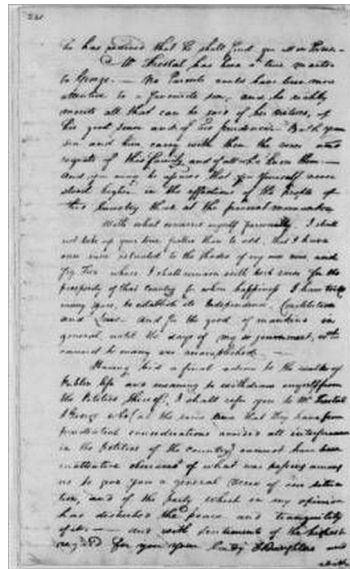 he has desired that he shall find you in Paris.—
Mr Frestal has been a true mentor
to George. — No Parents could have been more
attentive to a favourite son; and he richly
merits all that can be said of his virtues, of
his good sense and of his prudence. Both your
son and him carry with them the vows and
regrets of this family, and of all who know them —
And you may be assured that you yourself never
stood higher in the affections of the people of
this Country than at the present moment.
With what concerns myself personally, I shall
not take up your time further than to add, that I have
once more retreated to the shades of my own vine and
Fig Tree where I shall remain with best vows for the
prosperity of that Country for whose happiness I have toiled
many years, to establish its Independence, Constitution
and Laws. And for the good of mankind in
general, until the days of my sojournment, wch
cannot be many are accomplished. —
Having bid a final adieu to the walks of
Public life and meaning to withdraw myself from
the Politics thereof, I shall refer you to Mr Frestal
& George who (at the same time that they have from
prudential considerations avoided all interference
in the politics of the country) cannot have been
inattentive observers of what was passing among
us to give you a general view of our situa-
tion, and of the party which in my opinion
has disturbed the peace and tranquility
of it: — and with sentiments of the highest
regard for you your Lady & Daughters and
with